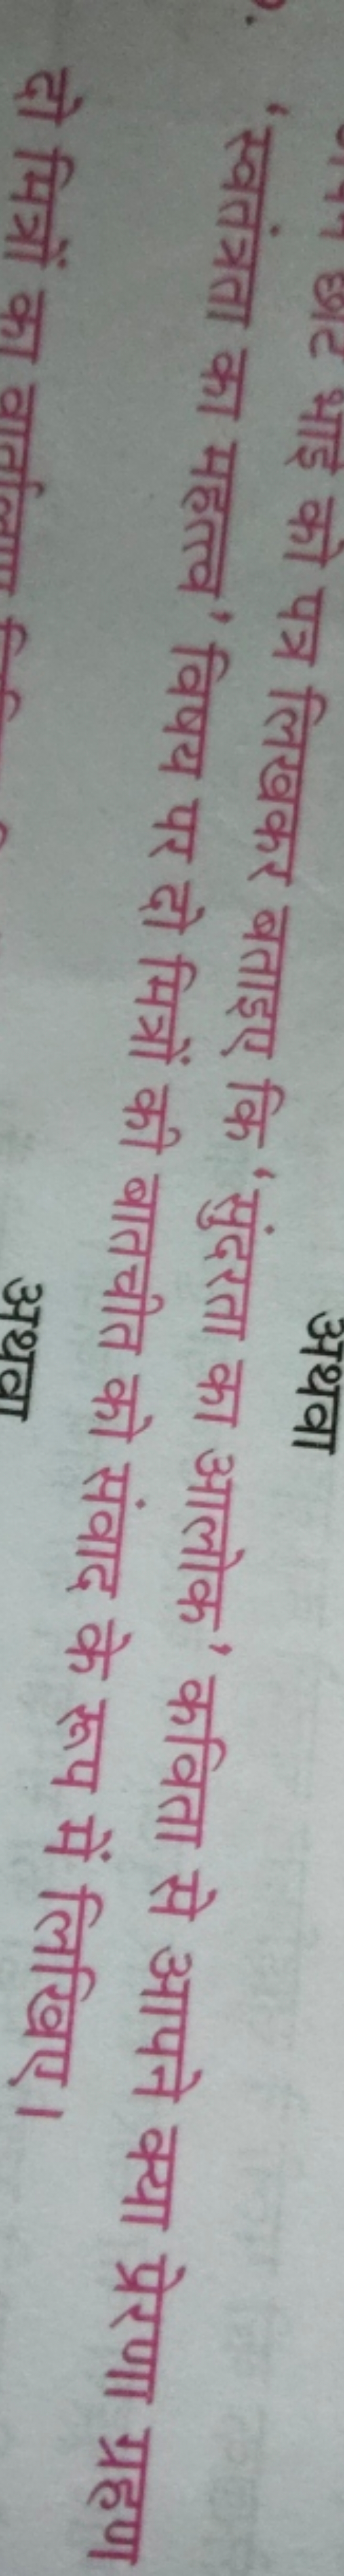 अथवा
छोटे भाई को पत्र लिखकर बताइए कि ‘सुंदरता का आलोक’ कविता से आपने क्या प्रेरणा ग्रहण
‘स्वतंत्रता का महत्त्व’ विषय पर दो मित्रों की बातचीत को संवाद के रूप में लिखिए।
अथवा
दो मित्रों का वार्तालाप